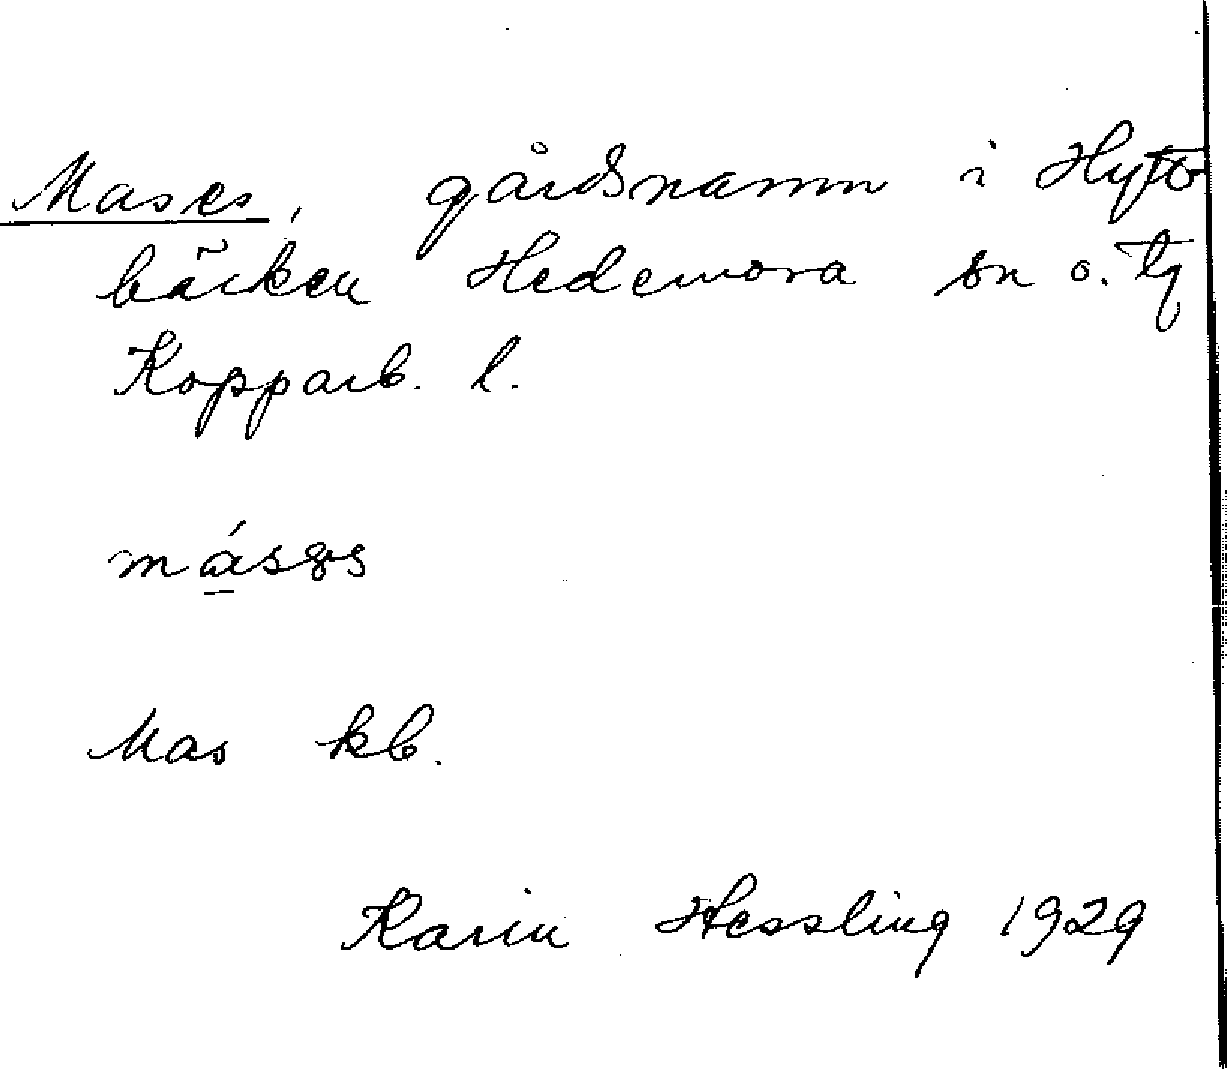 Mases, gårdsnamn i Hytt
bäcken Hedemora sn o. tg
Kopparb. l.
Mas kb.
Karin Hessling 1929